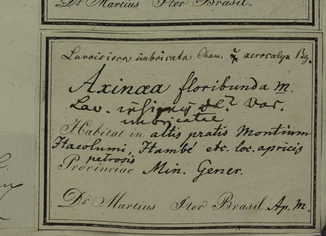 Dr Martius Iter Brasil.
Lavoisiera imbricata Cham. γ aerocalyx Bg.
Axinæa floribunda M.
Lav. insignis DC? Var.
imbricatae
Habitat in altis pratis Montium
Itacolumi, Itambé etc. loc. apricis
petrosis
Provinciae Min. Gener.
Dr Martius Iter Brasil. Ap. M.